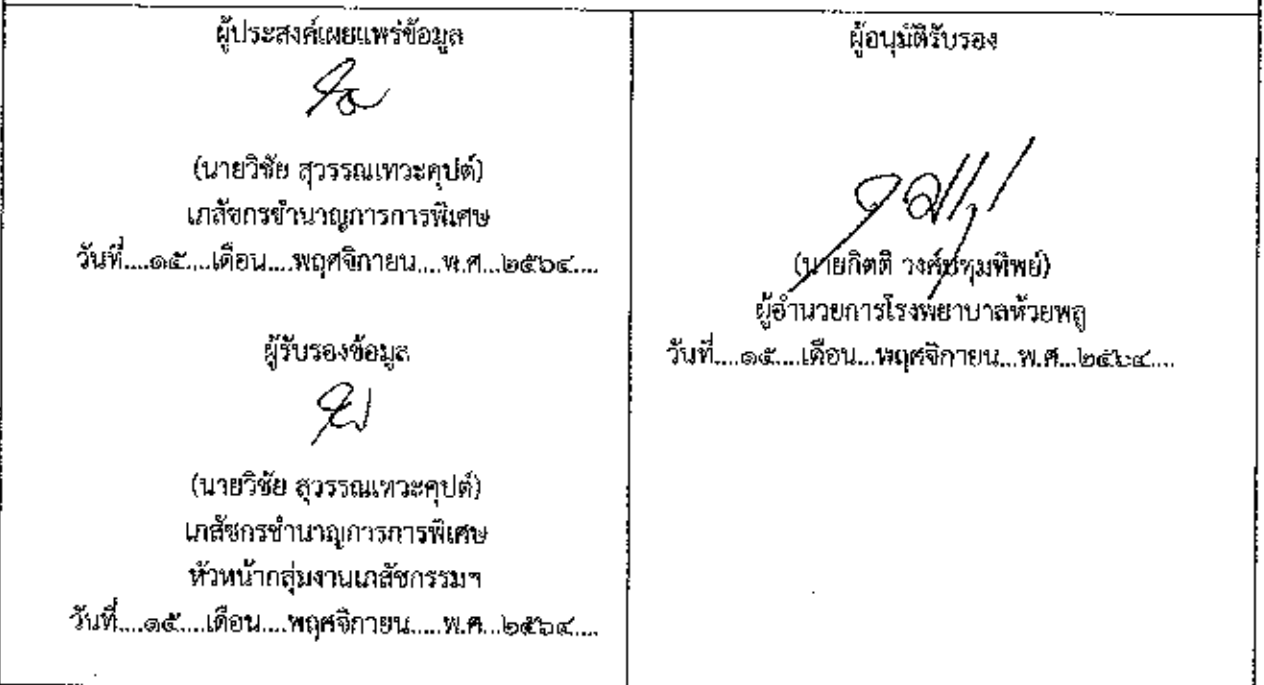 ผู้ประสงค์เผยแพร่ข้อมูล
(นายวิชัย สุวรรณเทวะคุปต์)
เภสัชกรชำนาญการการพิเศษ
วันที่....๑๕....เดือน....พฤศจิกายน....พ.ศ...๒๕๖๔....
ผู้รับรองข้อมูล
(นายวิชัย สุวรรณเทวะคุปต์)
เภสัชกรชำนาญการการพิเศษ
หัวหน้ากลุ่มงานเภสัชกรรมฯ
วันที่....๑๕....เดือน....พฤศจิกายน.....พ.ศ...๒๕๖๔....
ผู้อนุมัติรับรอง
(นายกิตติ วงศ์ปทุมทิพย์)
ผู้อำนวยการโรงพยาบาลห้วยพลู
วันที่....๑๕....เดือน...พฤศจิกายน...พ.ศ...๒๕๖๔....